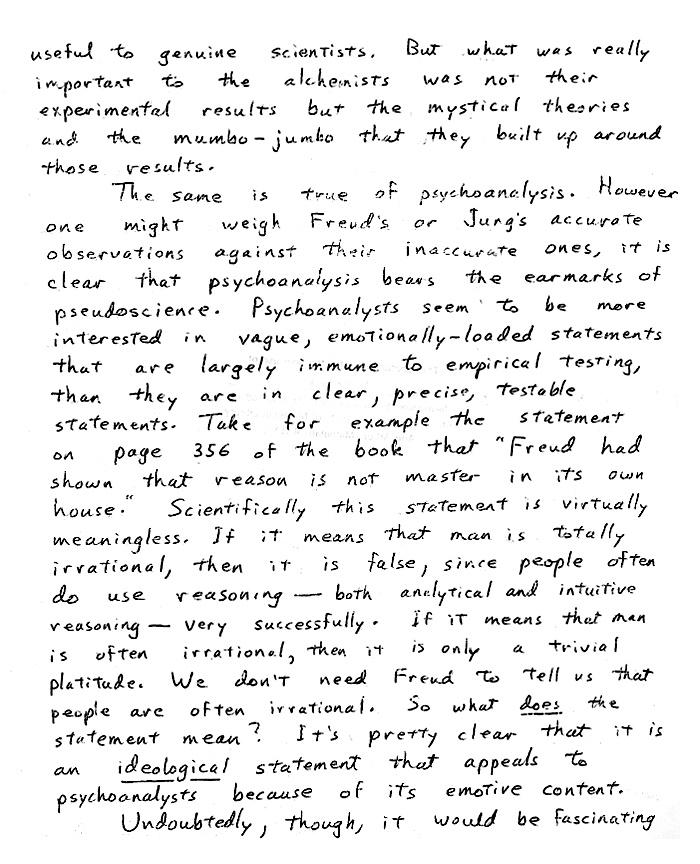 useful to genuine scientists. But what was really
important to the alchemists was not their
experimental results but the mystical theories
and the mumbo-jumbo that they built up around
those results.
The same is true of psychoanalysis. However
one might weigh Freud's or Jung's accurate
observations against their inaccurate ones, it is
clear that psychoanalysis bears the earmarks of
pseudoscience. Psychoanalysts seem to be more
interested in vague, emotionally-loaded statements
that are largely immune to empirical testing,
than they are in clear, precise, testable
statements. Take for example the statement
on page 356 of the book that "Freud had
shown that reason is not master in its own
house." Scientifically this statement is virtually
meaningless. If it means that man is totally
irrational, then it is false, since people often
do use reasoning — both analytical and intuitive
reasoning — very successfully. If it means that man
is often irrational, then it is only a trivial
platitude. We don't need Freud to tell us that
people are often irrational. So what does the
statement mean? It's pretty clear that it is
an ideological statement that appeals to
psychoanalysts because of its emotive content.
Undoubtedly, though, it would be fascinating